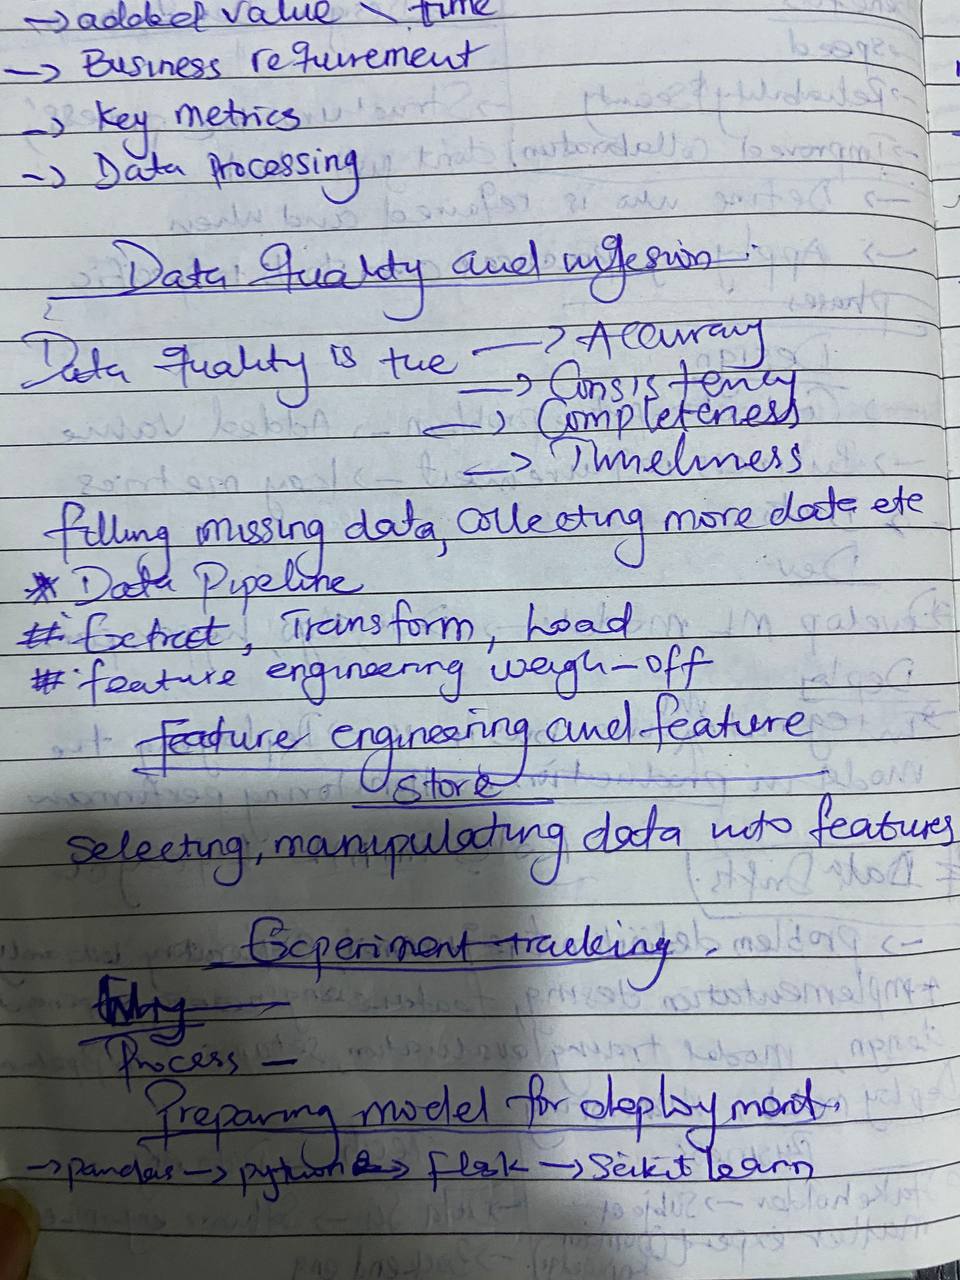 → added value \ time
→ Business requirement
→ Key metrics
→ Data Processing
Data Quality and ingesion :
Data Quality is the → Accuracy
→ Consistency
→ Completeness
→ Timeliness
filling missing data, collecting more data etc
* Data Pipeline
# Extract, Transform, Load
# feature engineering weigh-off
Feature engineering and feature
Store
Selecting, manipulating data into features
Experiment tracking
Why
Process –
Preparing model for deployment.
→ pandas → python → flask → Scikit learn